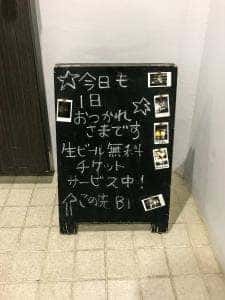 ☆今日も
1日
おつかれ☆
さまです
生ビール無料
チケット
サービス中！
⇑この先B1